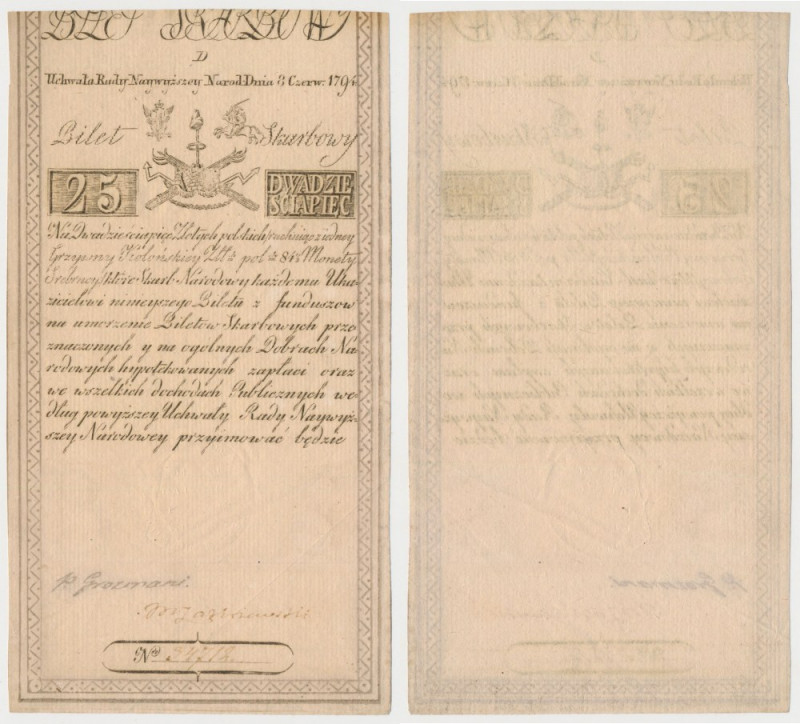 BILET SKARBOWY
D
Uchwała Rady Naywyższey Narod: Dnia 8 Czerw: 1794
Bilet Skarbowy
25 DWADZIE
ŚCIAPIĘC
Na Dwadzieściapięć Złotych polskich rachuiąc z iedney
Grzywny Kolońskiey Złł: pol: 84½ Monety
Srebrney, które Skarb Narodowy każdemu Uka-
zicielowi ninieyszego Biletu z funduszow
na umorzenie Biletow Skarbowych prze-
znaczonych y na ogolnych Dobrach Na-
rodowych hypotekowanych zapłaci oraz
we wszelkich dochodach Publicznych we-
dług powyższey Uchwały Rady Naywyż-
szey Narodowey przyimować będzie
No 34712